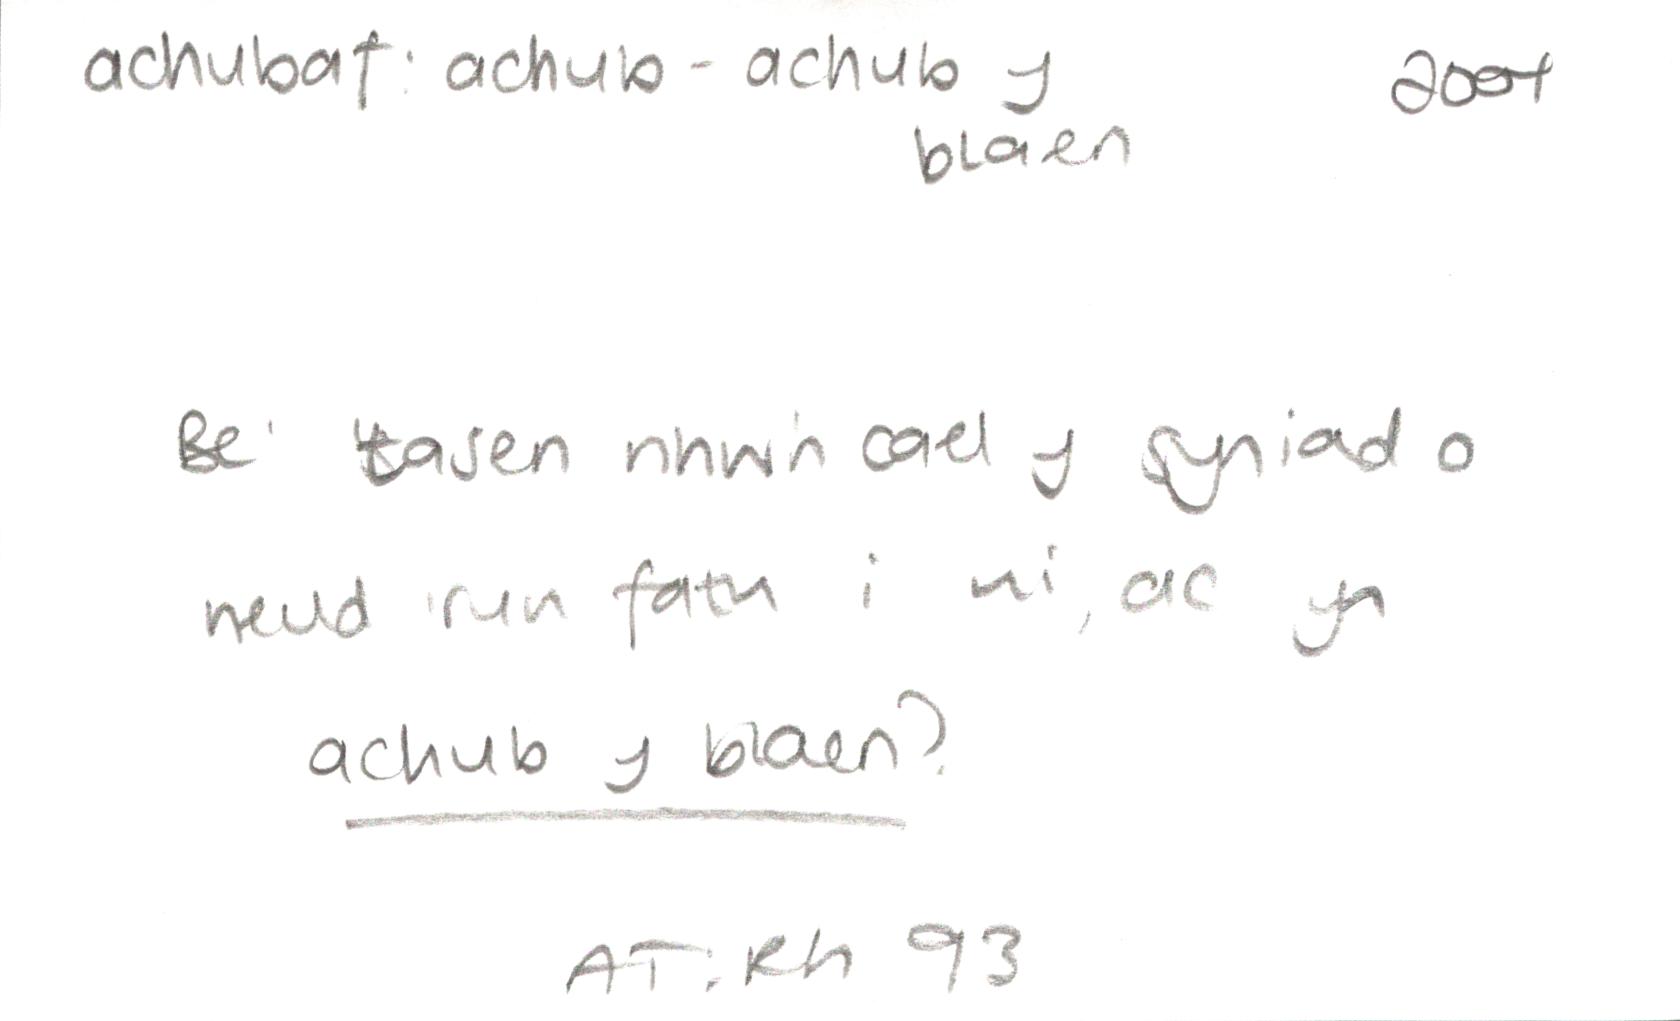 achubaf: achub - achub y 2004
blaen
Be' tasen nhw'n cael y syniad o
neud 'run fath i ni, ac yn
achub y blaen?
AT: Rh 93